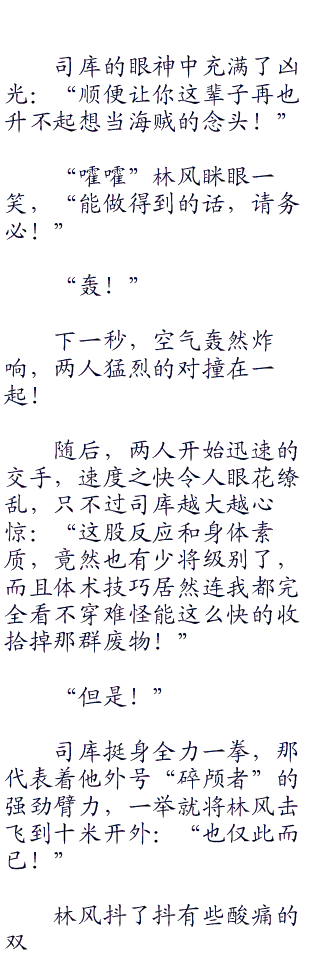 司库的眼神中充满了凶
光：“顺便让你这辈子再也
升不起想当海贼的念头！”
“嚯嚯”林风眯眼一
笑，“能做得到的话，请务
必！”
“轰！”
下一秒，空气轰然炸
响，两人猛烈的对撞在一
起！
随后，两人开始迅速的
交手，速度之快令人眼花缭
乱，只不过司库越大越心
惊：“这股反应和身体素
质，竟然也有少将级别了，
而且体术技巧居然连我都完
全看不穿难怪能这么快的收
拾掉那群废物！”
“但是！”
司库挺身全力一拳，那
代表着他外号“碎颅者”的
强劲臂力，一举就将林风击
飞到十米开外：“也仅此而
已！”
林风抖了抖有些酸痛的
双